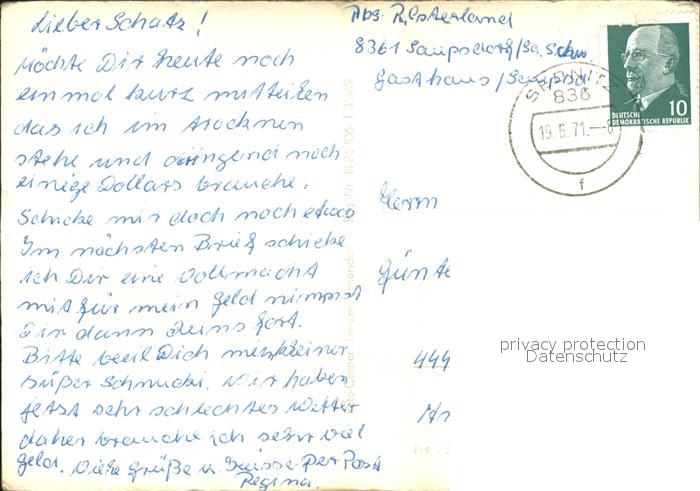 Lieber Schatz!
Möchte Dir heute noch
einmal kurz mitteilen
das ich im trocknen
stehe und dringend noch
einige Dollars brauche.
Schicke mir doch noch etwas
Im nächsten Brief schicke
ich Dir eine Vollmacht
mit für mein Geld nimmst
Dir dann Deins fort.
Bitte beeil Dich mein kleiner
süßer Schnucki. Wir haben
jetzt sehr schlechtes Wetter
daher brauche ich sehr viel
Geld. Viele Grüße u. Küsse per Post
Regina.
Abs. R. Osterland
8361 Saupsdorf/Sä. Schw.
Gasthaus/
SEBNITZ
836
19.6.71.
f
DEUTSCHE
DEMOKRATISCHE REPUBLIK
10
Herrn
Günte
444
privacy protection
Datenschutz